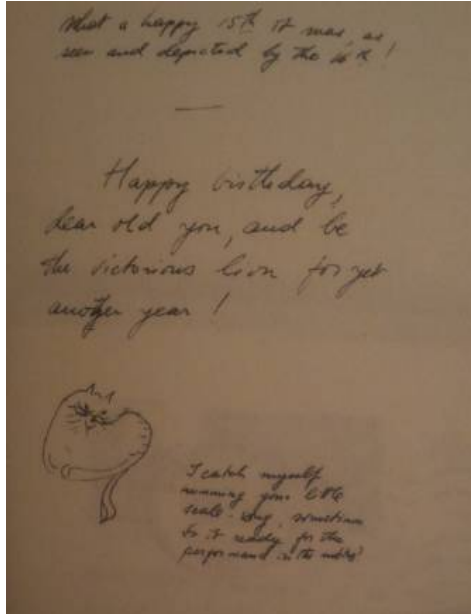 What a happy 15th it was, as
seen and depicted by the
Happy birthday,
dear old you, and be
the victorious lion for yet
another year!
I catch myself
humming your little
scale-song, sometimes
Is it ready for the
performance in the